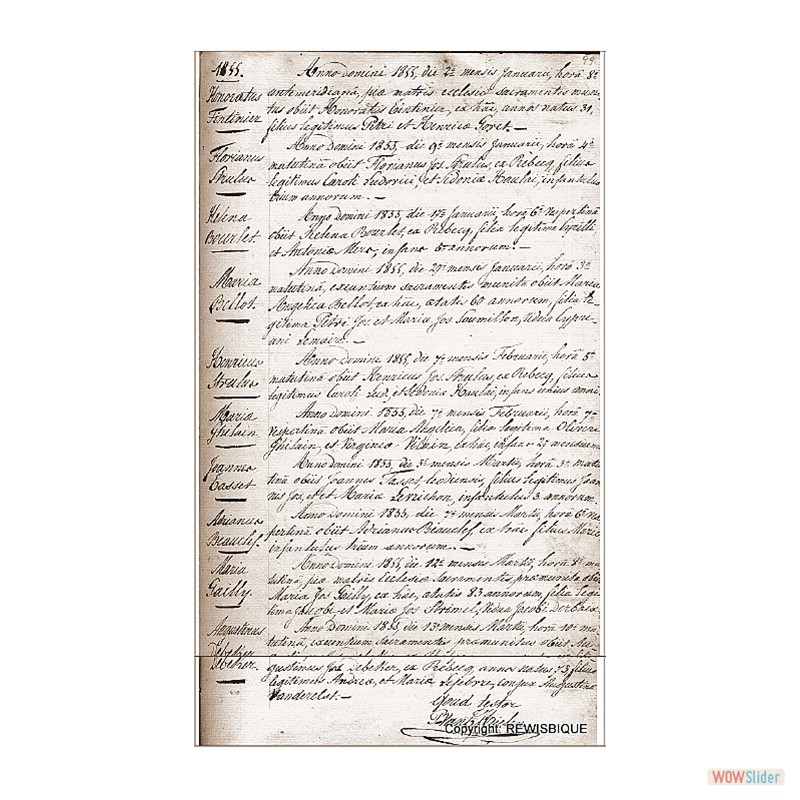 99.
1855.
Anno domini 1855, die 2ª mensis Januarii, horâ 8ª
Honoratus
antemeridianâ, piæ matris ecclesiæ sacramentis muni-
tus obiit Honoratus, ex hâc, annos natus 31,
filius legitimus Petri et Henricæ Goret.—
Anno domini 1855, die 9ª mensis Januarii, horâ 4ª
Florianus
matutinâ obiit Florianus Jos. Strulus, ex Rebecq, filius
Strulus
legitimus Caroli Ludovici, et Sidoniæ Haulai, infantulus
trium annorum.—
Helena
Anno domini 1855, die Januarii, horâ 6ª vespertinâ
Bourlet.
obiit Helena Bourlet, ex Rebecq, filia legitima Cyrilli
et Antoniæ, infans 6 annorum.—
Anno domini 1855, die 29ª mensis Januarii, horâ 3ª
Maria
matutinâ, exeuntium sacramentis munita obiit Maria
Bellot.
Angelica Bellot, ex hâc, ætatis 60 annorum, filia le-
gitima Petri Jos. et Mariæ Jos. Soumillon, vidua Cypri-
ani Lemaire.—
Henricus
Anno domini 1855, die 7ª mensis Februarii, horâ 5ª
Strulus
matutinâ obiit Henricus Jos. Strulus, ex Rebecq, filius
legitimus Caroli Lud. et Sidoniæ Haulai, infans unius anni.
Maria
Anno domini 1855, die 7ª mensis Februarii, horâ 7ª
Ghilain
vespertinâ obiit Maria Angelica, filia legitima Oliverii
Ghilain, et Virginiæ, ex hâc, infans 29 mensium.
Joannes
Anno domini 1855, die 3ª mensis Martii, horâ 3ª matu-
Tasset
tinâ obiit Joannes, leodiensis, filius legitimus Joan-
nis Jos. et Mariæ, infantulus 3 annorum.
Anno domini 1855, die 7ª mensis Martii, horâ 6ª ves-
Adrianus
pertinâ obiit Adrianus Beauclef, ex hâc filius Mariæ
Beauclef.
infantulus trium annorum.—
Maria
Anno domini 1855, die 12ª mensis Martii, horâ 8ª ma-
Gailly.
tutinâ, piæ matris Ecclesiæ Sacramentis præmunita obiit
Maria Jos. Gailly, ex hâc, ætatis 83 annorum, filia legi-
tima Jacobi et Mariæ Jos., vidua Jacobi
Augustinus
Anno domini 1855, die 13ª mensis Martii, horâ 10ª ma-
Debeker
tutinâ, exeuntium sacramentis præmunitus obiit Au-
Debeker.
gustinus Jos. Debeker, ex Rebecq, annos natus 73, filius
legitimus Andreæ, et Mariæ Lefebvre, conjux Augustinæ
Vanderelst.—
Quod testor
Copyright: REWISBIQUE
WOWSlider